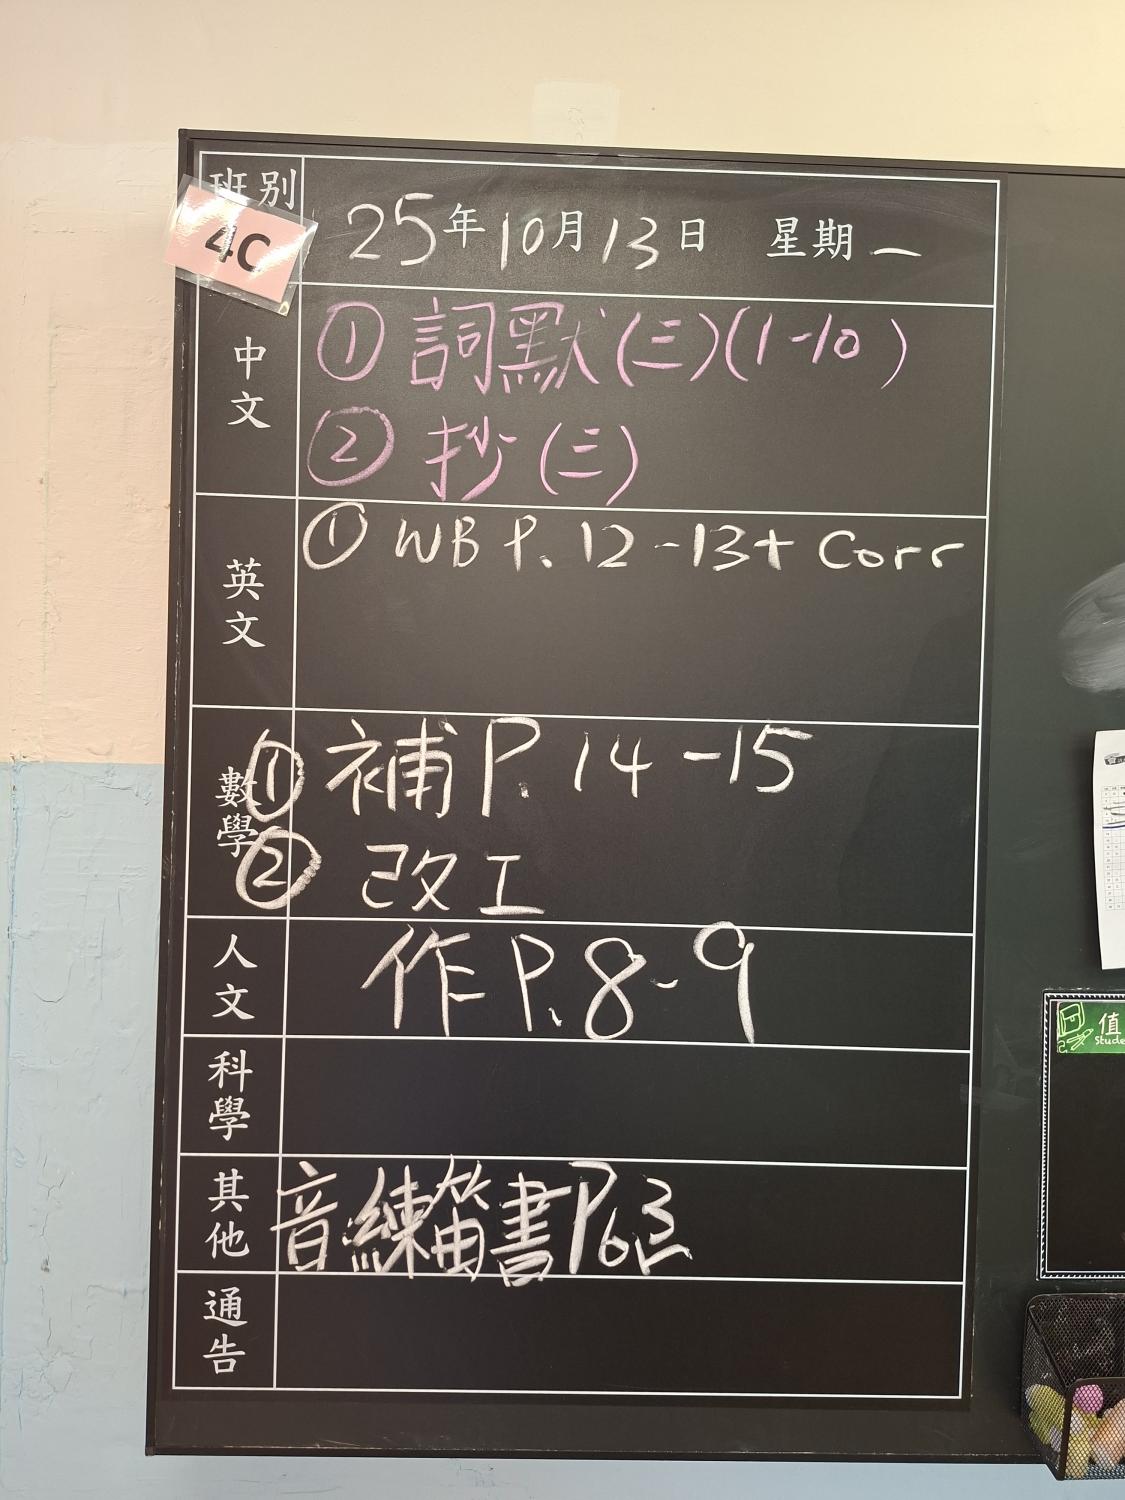 班別
4C
25年10月13日 星期一
中文
① 詞默(三)(1-10)
② 抄(三)
英文
① WB P. 12-13+ Corr
數學
① 補 P. 14-15
② 改工
人文
作 P. 8-9
科學
其他
音練笛書P6
通告
值
Stude